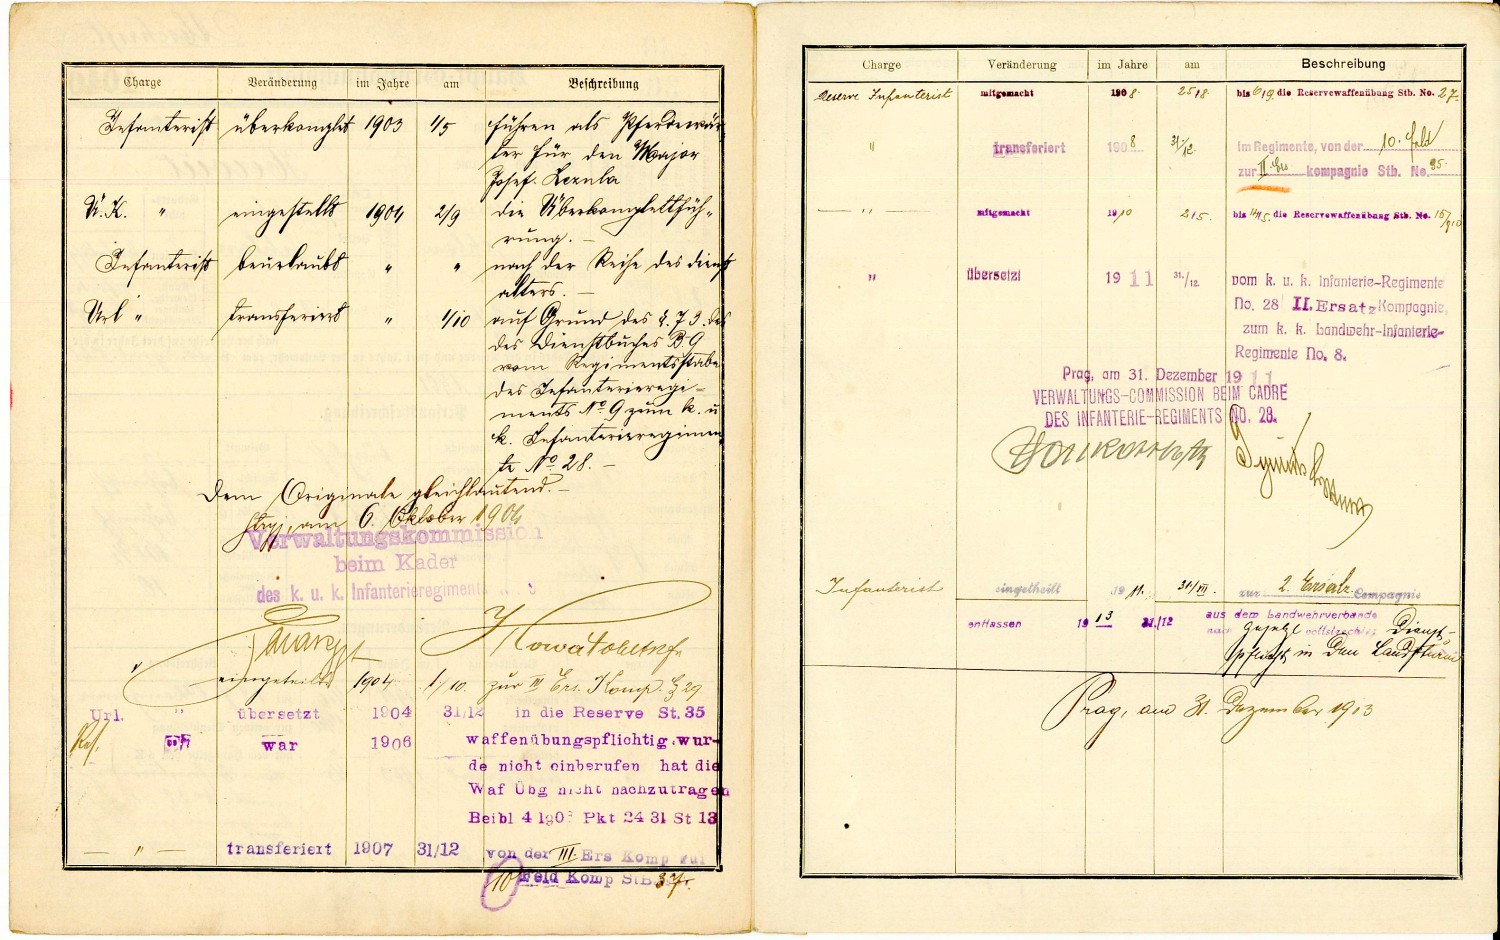 Charge Veränderung im Jahre am Beschreibung
Infanterist überkomplet 1903 1/5 führen als Pferdewär-
ter für den Major
Josef
Ü. K. " eingestellt 1904 2/9 die Überkompletfüh-
rung. –
Infanterist beurlaubt " " nach der Reihe des Dienst
alters. –
Url " transferiert " 1/10 auf Grund des §. 73. des
des Dienstbuches B 9
vom Regimentsstabe
des Infanterieregi-
ments No 9 zum k. u
k. Infanterieregimen
te No 28. –
Dem Originale gleichlautend. –
am 6. Oktober 1904
Verwaltungskommission
beim Kader
des k. u. k. Infanterieregiments
" eingeteilt 1904 1/10. zur III Ers. Komp. § 29
Url. " übersetzt 1904 31/12 in die Reserve St. 35
Res. war 1906 waffenübungspflichtig, wur-
de nicht einberufen hat die
Waf Übg nicht nachzutragen
Beibl 4 190 Pkt 24 31 St 13
— " — transferiert 1907 31/12 von der III Ers Komp zur
10 Feld Komp StB 37.
Charge Veränderung im Jahre am Beschreibung
Reserve Infanterist mitgemacht 1908. 25/8. bis 6/9. die Reservewaffenübung Stb. No. 27.
" transferiert 1908 31/12 im Regimente, von der 10. Feld
zur II Ers kompagnie Stb. No. 95.
— " — mitgemacht 1910 2/5. bis 14/5. die Reservewaffenübung Stb. No. 15/910
" übersetzt 1911 31./12. vom k. u. k. Infanterie-Regimente
No. 28 II. Ersatz Kompagnie,
zum k. k. Landwehr-Infanterie-
Regimente No. 8.
Prag, am 31. Dezember 1911
VERWALTUNGS-COMMISSION BEIM CADRE
DES INFANTERIE-REGIMENTS NO. 28.
Infanterist eingetheilt 1911. 31/XII. zur 2. Ersatz Compagnie
entlassen 1913 31/12 aus dem Landwehrverbande
nach gesetzl vollstreckter Dienst-
pflicht in den Landsturm
Prag, am 31. Dezember 1913